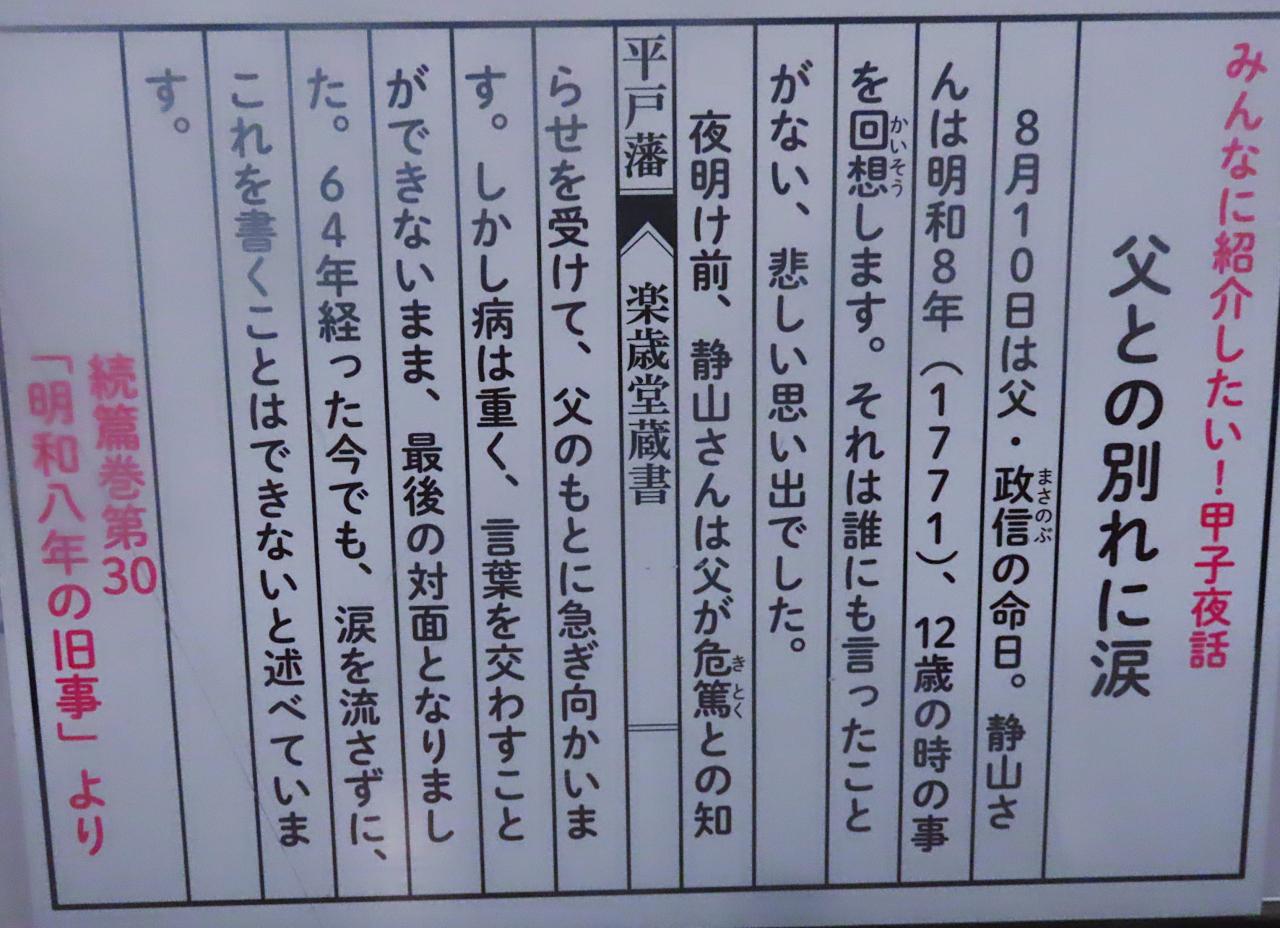 みんなに紹介したい！甲子夜話
父との別れに涙
8月10日は父・政信の命日。静山さ
まさのぶ
んは明和8年（1771）、12歳の時の事
を回想します。それは誰にも言ったこと
かいそう
がない、悲しい思い出でした。
夜明け前、静山さんは父が危篤との知
きとく
平戸藩 楽歳堂蔵書
らせを受けて、父のもとに急ぎ向かいま
す。しかし病は重く、言葉を交わすこと
ができないまま、最後の対面となりまし
た。64年経った今でも、涙を流さずに、
これを書くことはできないと述べていま
す。
続篇巻第30
「明和八年の旧事」より